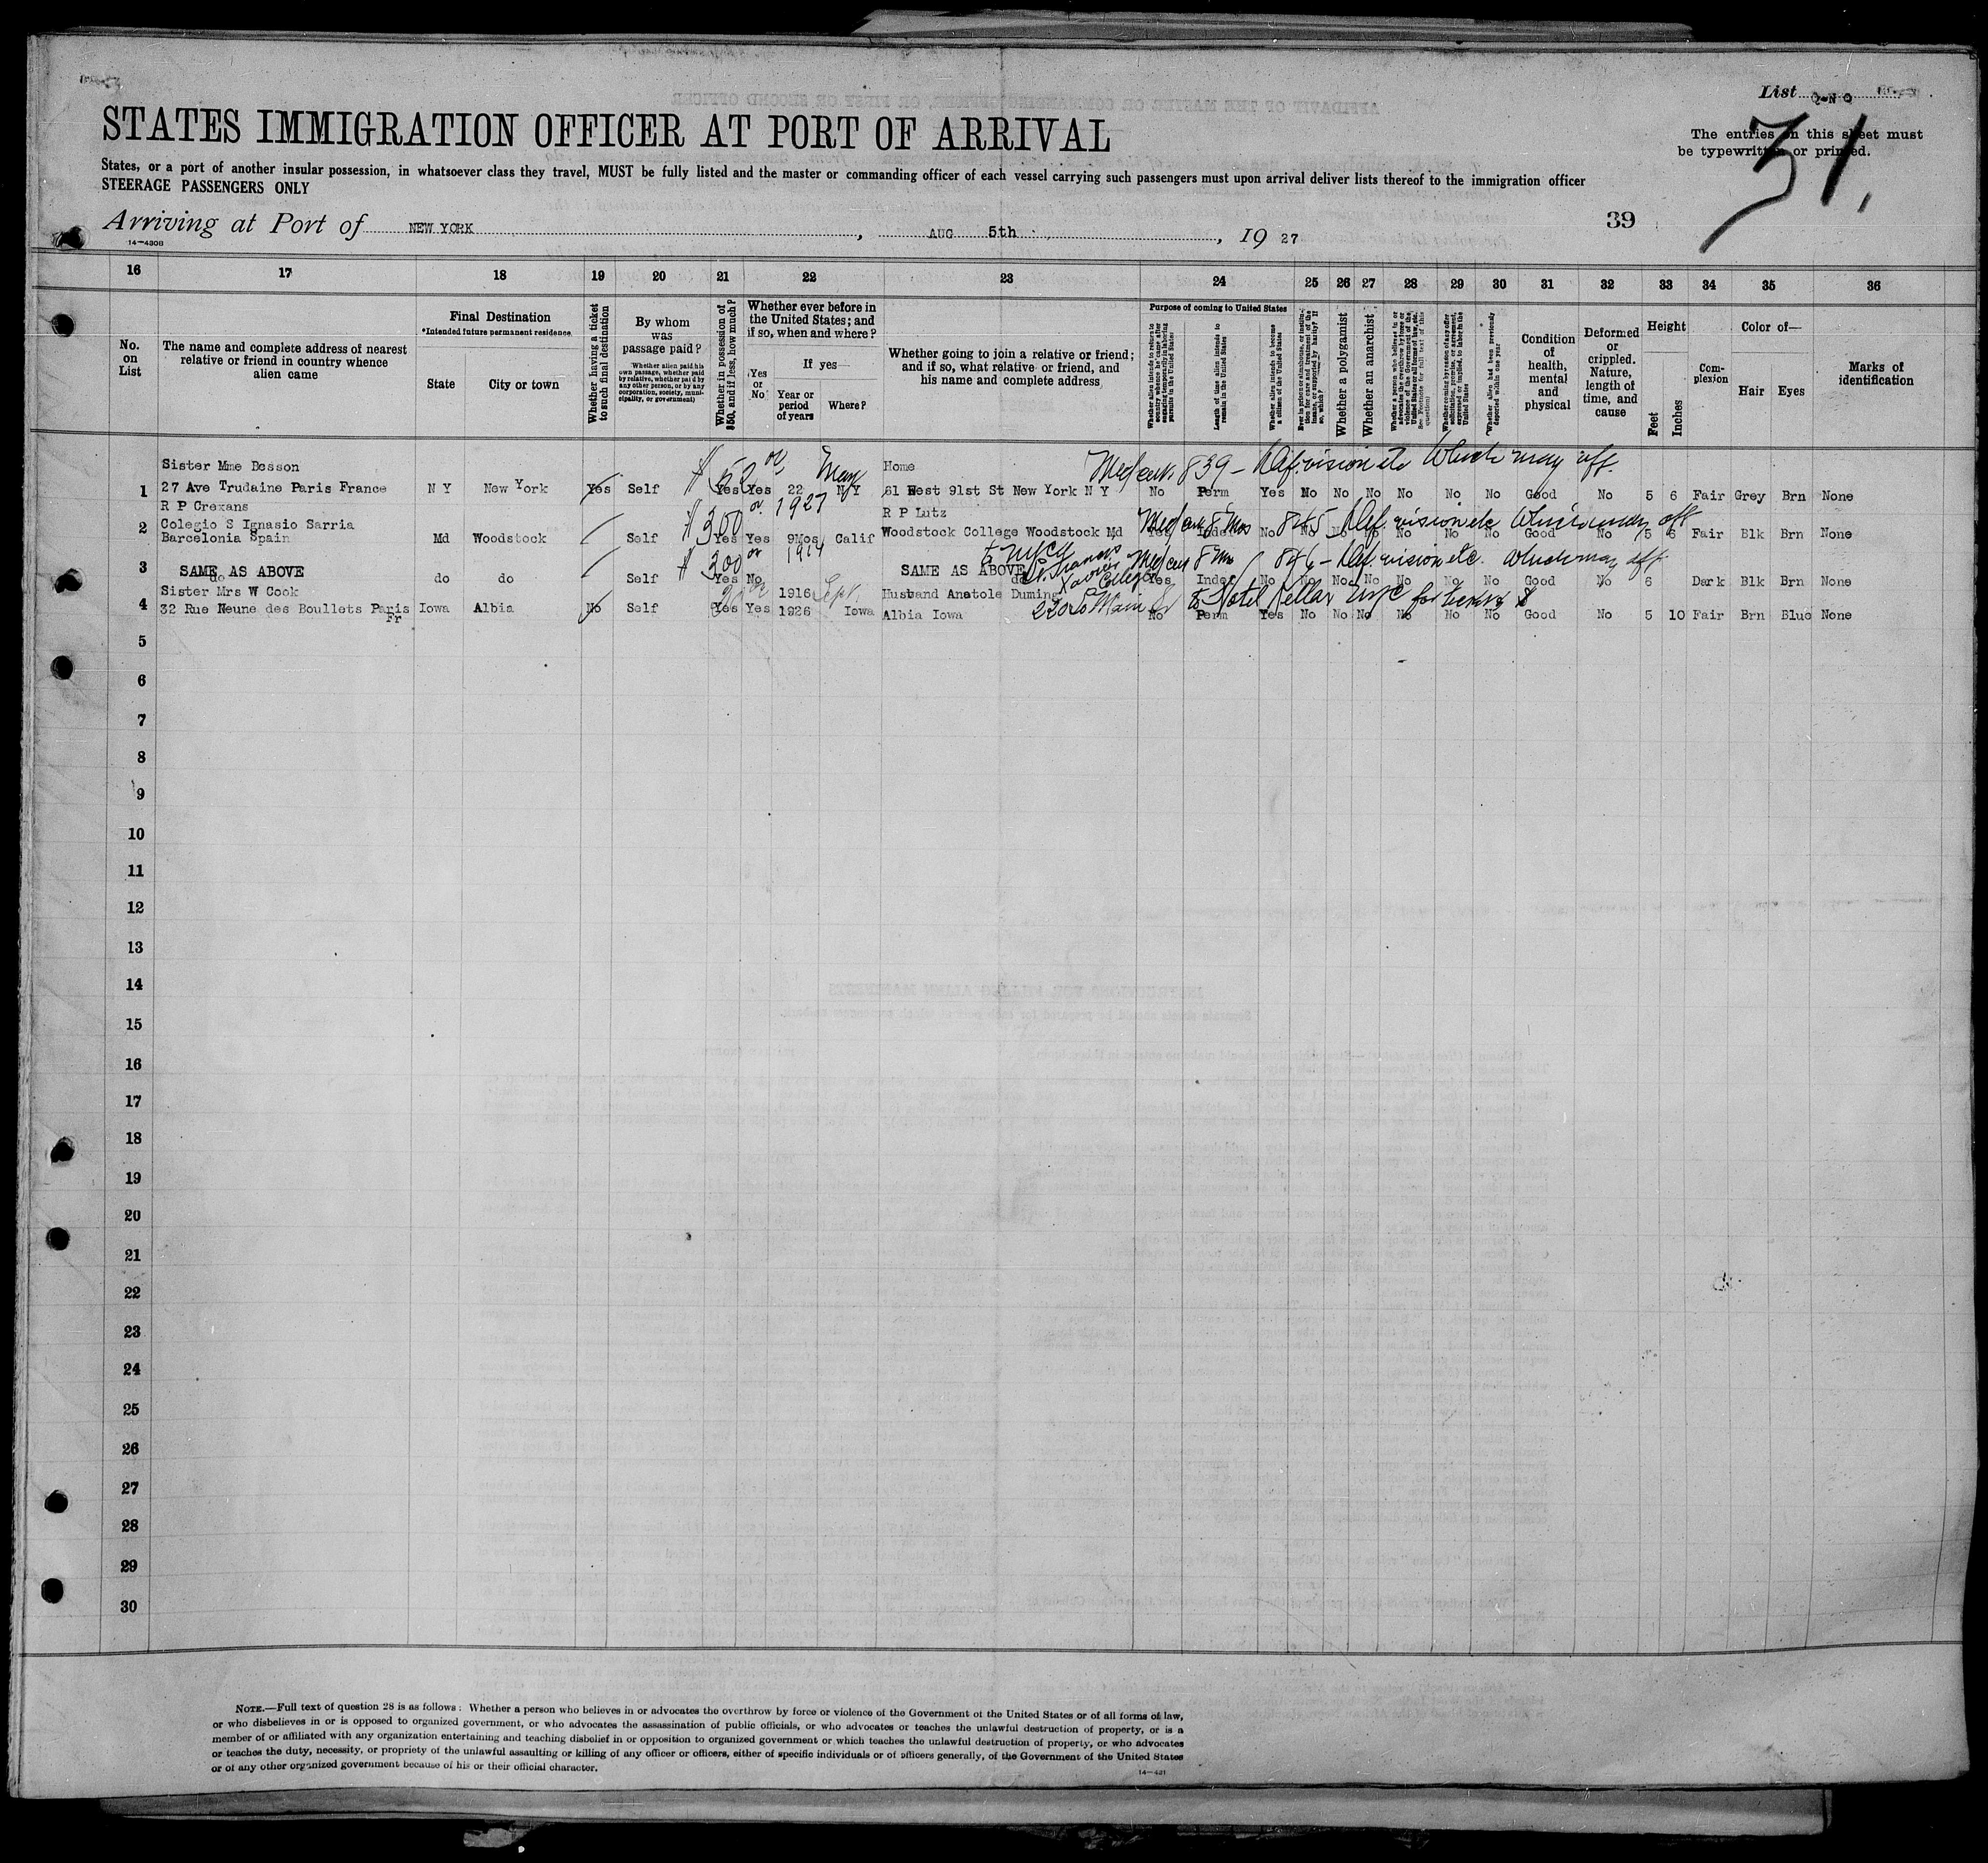 List
STATES IMMIGRATION OFFICER AT PORT OF ARRIVAL
The entries on this sheet must
be typewritten or printed.
31,
States, or a port of another insular possession, in whatsoever class they travel, MUST be fully listed and the master or commanding officer of each vessel carrying such passengers must upon arrival deliver lists thereof to the immigration officer
STEERAGE PASSENGERS ONLY
39
Arriving at Port of NEW YORK, AUG 5th, 19 27
14-4308
16 17 18 19 20 21 22 23 24 25 26 27 28 29 30 31 32 33 34 35 36
No. on List
The name and complete address of nearest relative or friend in country whence alien came
Final Destination
*Intended future permanent residence.
State City or town
Whether having a ticket to such final destination
By whom was passage paid?
Whether alien paid his own passage, whether paid by relative, whether paid by any other person, or by any corporation, society, municipality, or government)
Whether in possession of $50, and if less, how much?
Whether ever before in the United States; and if so, when and where?
Yes or No
If yes—
Year or period of years
Where?
Whether going to join a relative or friend; and if so, what relative or friend, and his name and complete address
Purpose of coming to United States
Whether alien intends to return to country whence he came after engaging temporarily in laboring pursuits in the United States
Length of time alien intends to remain in the United States
Whether alien intends to become a citizen of the United States
Whether a polygamist
Whether an anarchist
Condition of health, mental and physical
Deformed or crippled. Nature, length of time, and cause
Height
Feet Inches
Complexion
Color of—
Hair Eyes
Marks of identification
Sister Mme Besson $ 50 00 May Home Med cert 839 - Def. vision etc Which may aff.
1 27 Ave Trudaine Paris France N Y New York Yes Self Yes Yes 22 N Y 61 West 91st St New York N Y No Perm Yes No No No No No No Good No 5 6 Fair Grey Brn None
R P Crexans $ 300 00 1927 R P Lutz
2 Colegio S Ignasio Sarria Med cert 8 Mos 845 Def. vision etc Which may aff
Barcelonia Spain Md Woodstock Self Yes Yes 9Mos Calif Woodstock College Woodstock Md Yes Indef No No No No No No No Good No 5 6 Fair Blk Brn None
$ 300 00 1914 St. Francis Xavier College
3 SAME AS ABOVE SAME AS ABOVE Med cert 8 Mo 846 - Def. vision etc. Which may aff
do do do Self Yes No do Yes Indef No No No No No No No Good No 6 Dark Blk Brn None
Sister Mrs W Cook 1916 Sept. Husband Anatole Duming
4 32 Rue Neune des Boullets Paris Fr Iowa Albia No Self Yes Yes 1926 Iowa Albia Iowa 220 So Main St No Perm Yes No No No No No No Good No 5 10 Fair Brn Blue None
5
6
7
8
9
10
11
12
13
14
15
16
17
18
19
20
21
22
23
24
25
26
27
28
29
30
NOTE.—Full text of question 28 is as follows: Whether a person who believes in or advocates the overthrow by force or violence of the Government of the United States or of all forms of law,
or who disbelieves in or is opposed to organized government, or who advocates the assassination of public officials, or who advocates or teaches the unlawful destruction of property, or is a
member of or affiliated with any organization entertaining and teaching disbelief in or opposition to organized government or which teaches the unlawful destruction of property, or who advocates
or teaches the duty, necessity, or propriety of the unlawful assaulting or killing of any officer or officers, either of specific individuals or of officers generally, of the Government of the United States
or of any other organized government because of his or their official character.
14-421